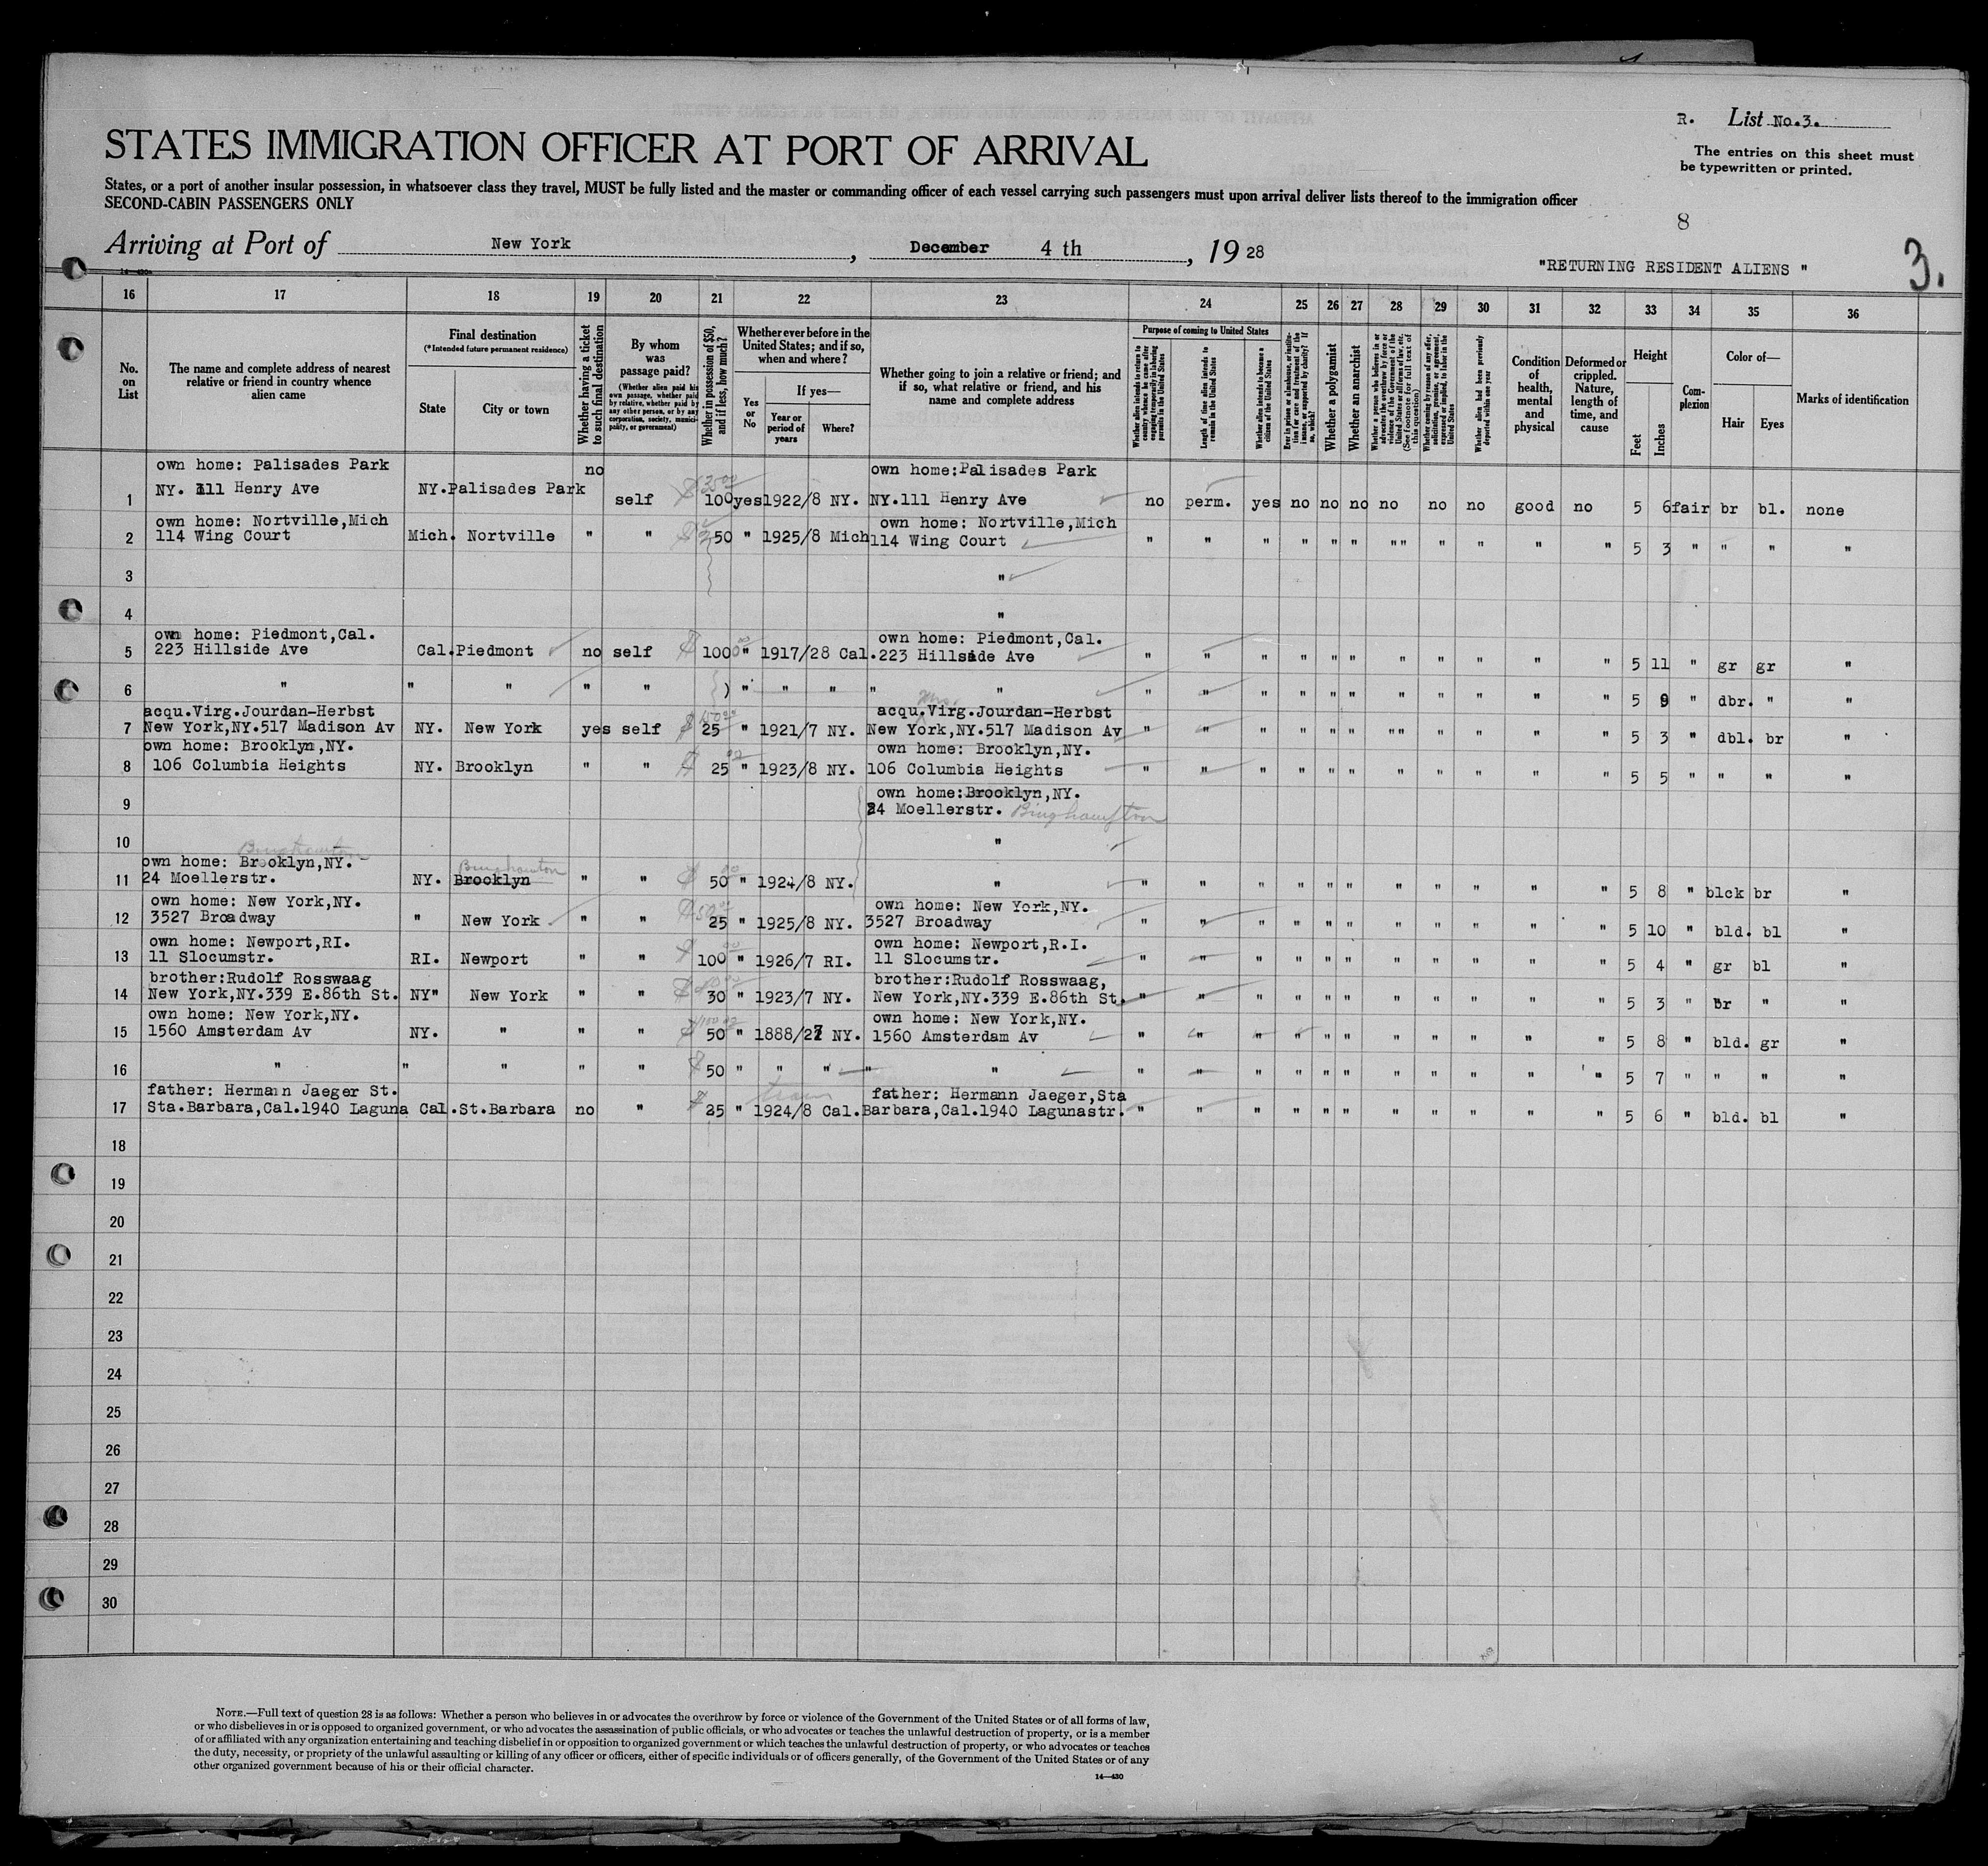 R. List No.3.
STATES IMMIGRATION OFFICER AT PORT OF ARRIVAL
The entries on this sheet must
be typewritten or printed.
States, or a port of another insular possession, in whatsoever class they travel, MUST be fully listed and the master or commanding officer of each vessel carrying such passengers must upon arrival deliver lists thereof to the immigration officer
SECOND-CABIN PASSENGERS ONLY
8
Arriving at Port of New York, December 4 th, 19 28
"RETURNING RESIDENT ALIENS"
3.
16 17 18 19 20 21 22 23 24 25 26 27 28 29 30 31 32 33 34 35 36
No. on List
The name and complete address of nearest relative or friend in country whence alien came
Final destination
(*Intended future permanent residence)
State
City or town
Whether having a ticket to such final destination
By whom was passage paid?
(Whether alien paid his own passage, whether paid by relative, whether paid by any other person, or by any corporation, society, municipality, or government)
Whether in possession of $50, and if less, how much?
Whether ever before in the United States; and if so, when and where?
Yes or No
If yes—
Year or period of years
Where?
Whether going to join a relative or friend; and if so, what relative or friend, and his name and complete address
Purpose of coming to United States
Whether alien intends to return to country whence he came after engaging temporarily in laboring pursuits in the United States
Length of time alien intends to remain in the United States
Whether alien intends to become a citizen of the United States
Ever in prison or almshouse, or institution for care and treatment of the insane, or supported by charity? If so, which?
Whether a polygamist
Whether an anarchist
Whether a person who believes in or advocates the overthrow by force or violence of the Government of the United States or all forms of law, etc. (See footnote for full text of this question)
Whether coming by reason of any offer, solicitation, promise, or agreement, expressed or implied, to labor in the United States
Whether alien had been previously deported within one year
Condition of health, mental and physical
Deformed or crippled. Nature, length of time, and cause
Height
Feet
Inches
Complexion
Color of—
Hair
Eyes
Marks of identification
own home: Palisades Park no own home:Palisades Park
1 NY. 111 Henry Ave NY. Palisades Park self 100 yes 1922/8 NY. NY.111 Henry Ave no perm. yes no no no no no no good no 5 6 fair br bl. none
own home: Nortville,Mich own home: Nortville,Mich
2 114 Wing Court Mich. Nortville " " 50 " 1925/8 Mich 114 Wing Court " " " " " " "" " " " " 5 3 " " " "
3 "
4 "
own home: Piedmont,Cal. own home: Piedmont,Cal.
5 223 Hillside Ave Cal. Piedmont no self 100 " 1917/28 Cal. 223 Hillside Ave " " " " " " " " " " " 5 11 " gr gr "
6 " " " " " ) " " " " " " " " " " " " " " " " 5 9 " dbr. " "
acqu.Virg.Jourdan-Herbst Mrs. acqu.Virg.Jourdan-Herbst
7 New York,NY.517 Madison Av NY. New York yes self 25 " 1921/7 NY. New York,NY.517 Madison Av " " " " " " "" " " " " 5 3 " dbl. br "
own home: Brooklyn,NY. own home: Brooklyn,NY.
8 106 Columbia Heights NY. Brooklyn " " 25 " 1923/8 NY. 106 Columbia Heights " " " " " " " " " " " 5 5 " " " "
own home:Brooklyn,NY.
9 24 Moellerstr. Binghamton
10 "
Binghamton
own home: Brooklyn,NY. Binghamton
11 24 Moellerstr. NY. Brooklyn " " 50 " 1924/8 NY. " " " " " " " " " " " " 5 8 " blck br "
own home: New York,NY. own home: New York,NY.
12 3527 Broadway " New York " " 25 " 1925/8 NY. 3527 Broadway " " " " " " " " " " " 5 10 " bld. bl "
own home: Newport,RI. own home: Newport,R.I.
13 11 Slocumstr. RI. Newport " " 100 " 1926/7 RI. 11 Slocumstr. " " " " " " " " " " " 5 4 " gr bl "
brother:Rudolf Rosswaag brother:Rudolf Rosswaag,
14 New York,NY.339 E.86th St. NY" New York " " 30 " 1923/7 NY. New York,NY.339 E.86th St. " " " " " " " " " " " 5 3 " br " "
own home: New York,NY. own home: New York,NY.
15 1560 Amsterdam Av NY. " " " 50 " 1888/27 NY. 1560 Amsterdam Av " " " " " " " " " " " 5 8 " bld. gr "
16 " " " " " $ 50 " " " " " " " " " " " " " " " 5 7 " " " "
father: Hermann Jaeger St. father: Hermann Jaeger,Sta
17 Sta.Barbara,Cal.1940 Laguna Cal. St.Barbara no " 25 " 1924/8 Cal. Barbara,Cal.1940 Lagunastr. " " " " " " " " " " " 5 6 " bld. bl "
18
19
20
21
22
23
24
25
26
27
28
29
30
NOTE.—Full text of question 28 is as follows: Whether a person who believes in or advocates the overthrow by force or violence of the Government of the United States or of all forms of law,
or who disbelieves in or is opposed to organized government, or who advocates the assassination of public officials, or who advocates or teaches the unlawful destruction of property, or is a member
of or affiliated with any organization entertaining and teaching disbelief in or opposition to organized government or which teaches the unlawful destruction of property, or who advocates or teaches
the duty, necessity, or propriety of the unlawful assaulting or killing of any officer or officers, either of specific individuals or of officers generally, of the Government of the United States or of any
other organized government because of his or their official character.
14—430